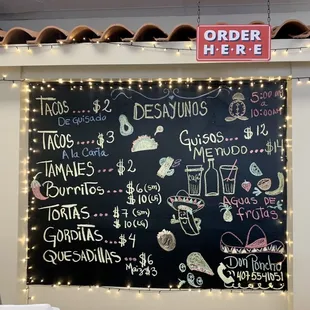 ORDER
H·E·R·E
DESAYUNOS
5:00
a
10:00
TACOS ..... $2
De Guisado
TACOS .... $3
A la Carta
TAMALES .... $2
Burritos .... $6 (sm)
$10 (LG)
TORTAS .... $7 (sm)
$10 (LG)
GORDITAS .... $4
QUESADILLAS .... $6
Maiz $3
Guisos .... $12
MENUDO .... $14
Aguas de
frutas
Don Poncho